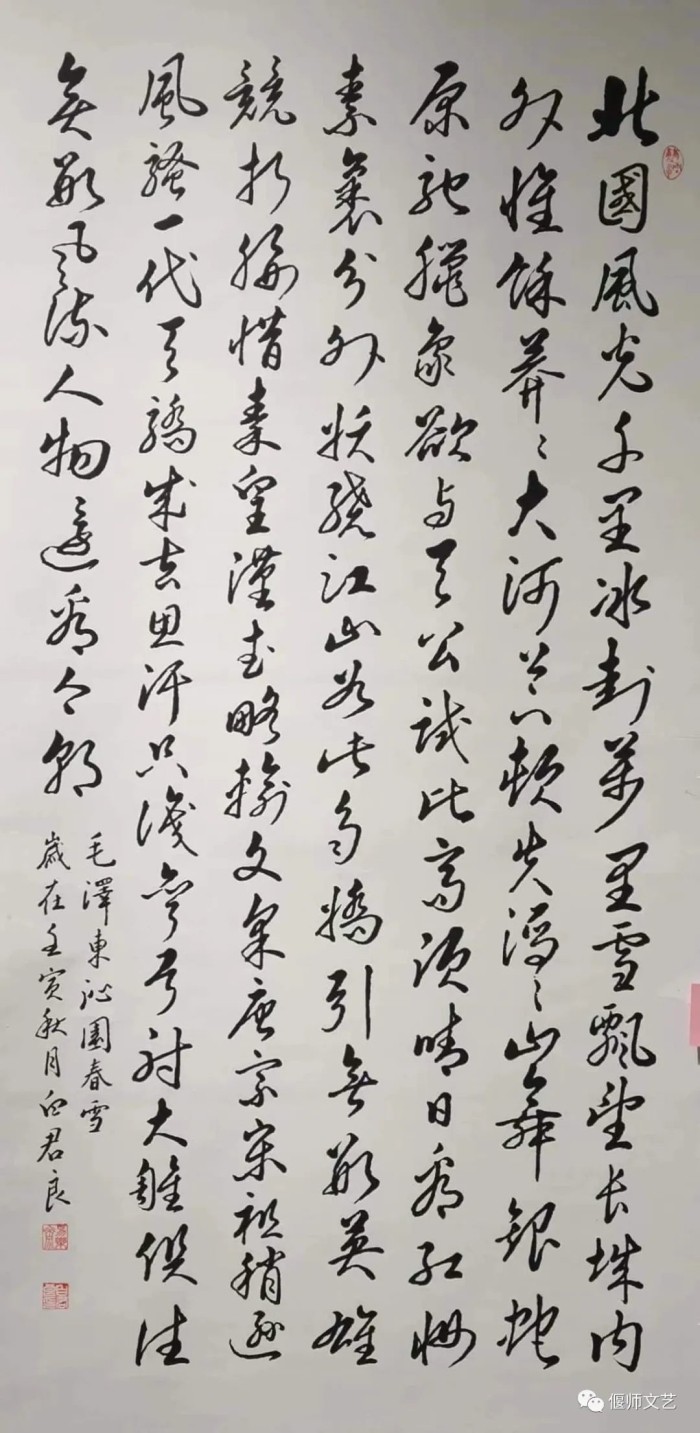 北國風光千里冰封萬里雪飄望長城内
外惟餘莽〻大河上下頓失滔〻山舞銀蛇
原馳臘象欲与天公試比高須晴日看紅妝
素裹分外妖嬈江山如此多嬌引無數英雄
競折腰惜秦皇漢武略輸文采唐宗宋祖稍遜
風騷一代天驕成吉思汗只識彎弓射大雕俱往
矣數風流人物還看今朝
毛澤東沁園春雪
歲在壬寅秋月白君良
偃师文艺